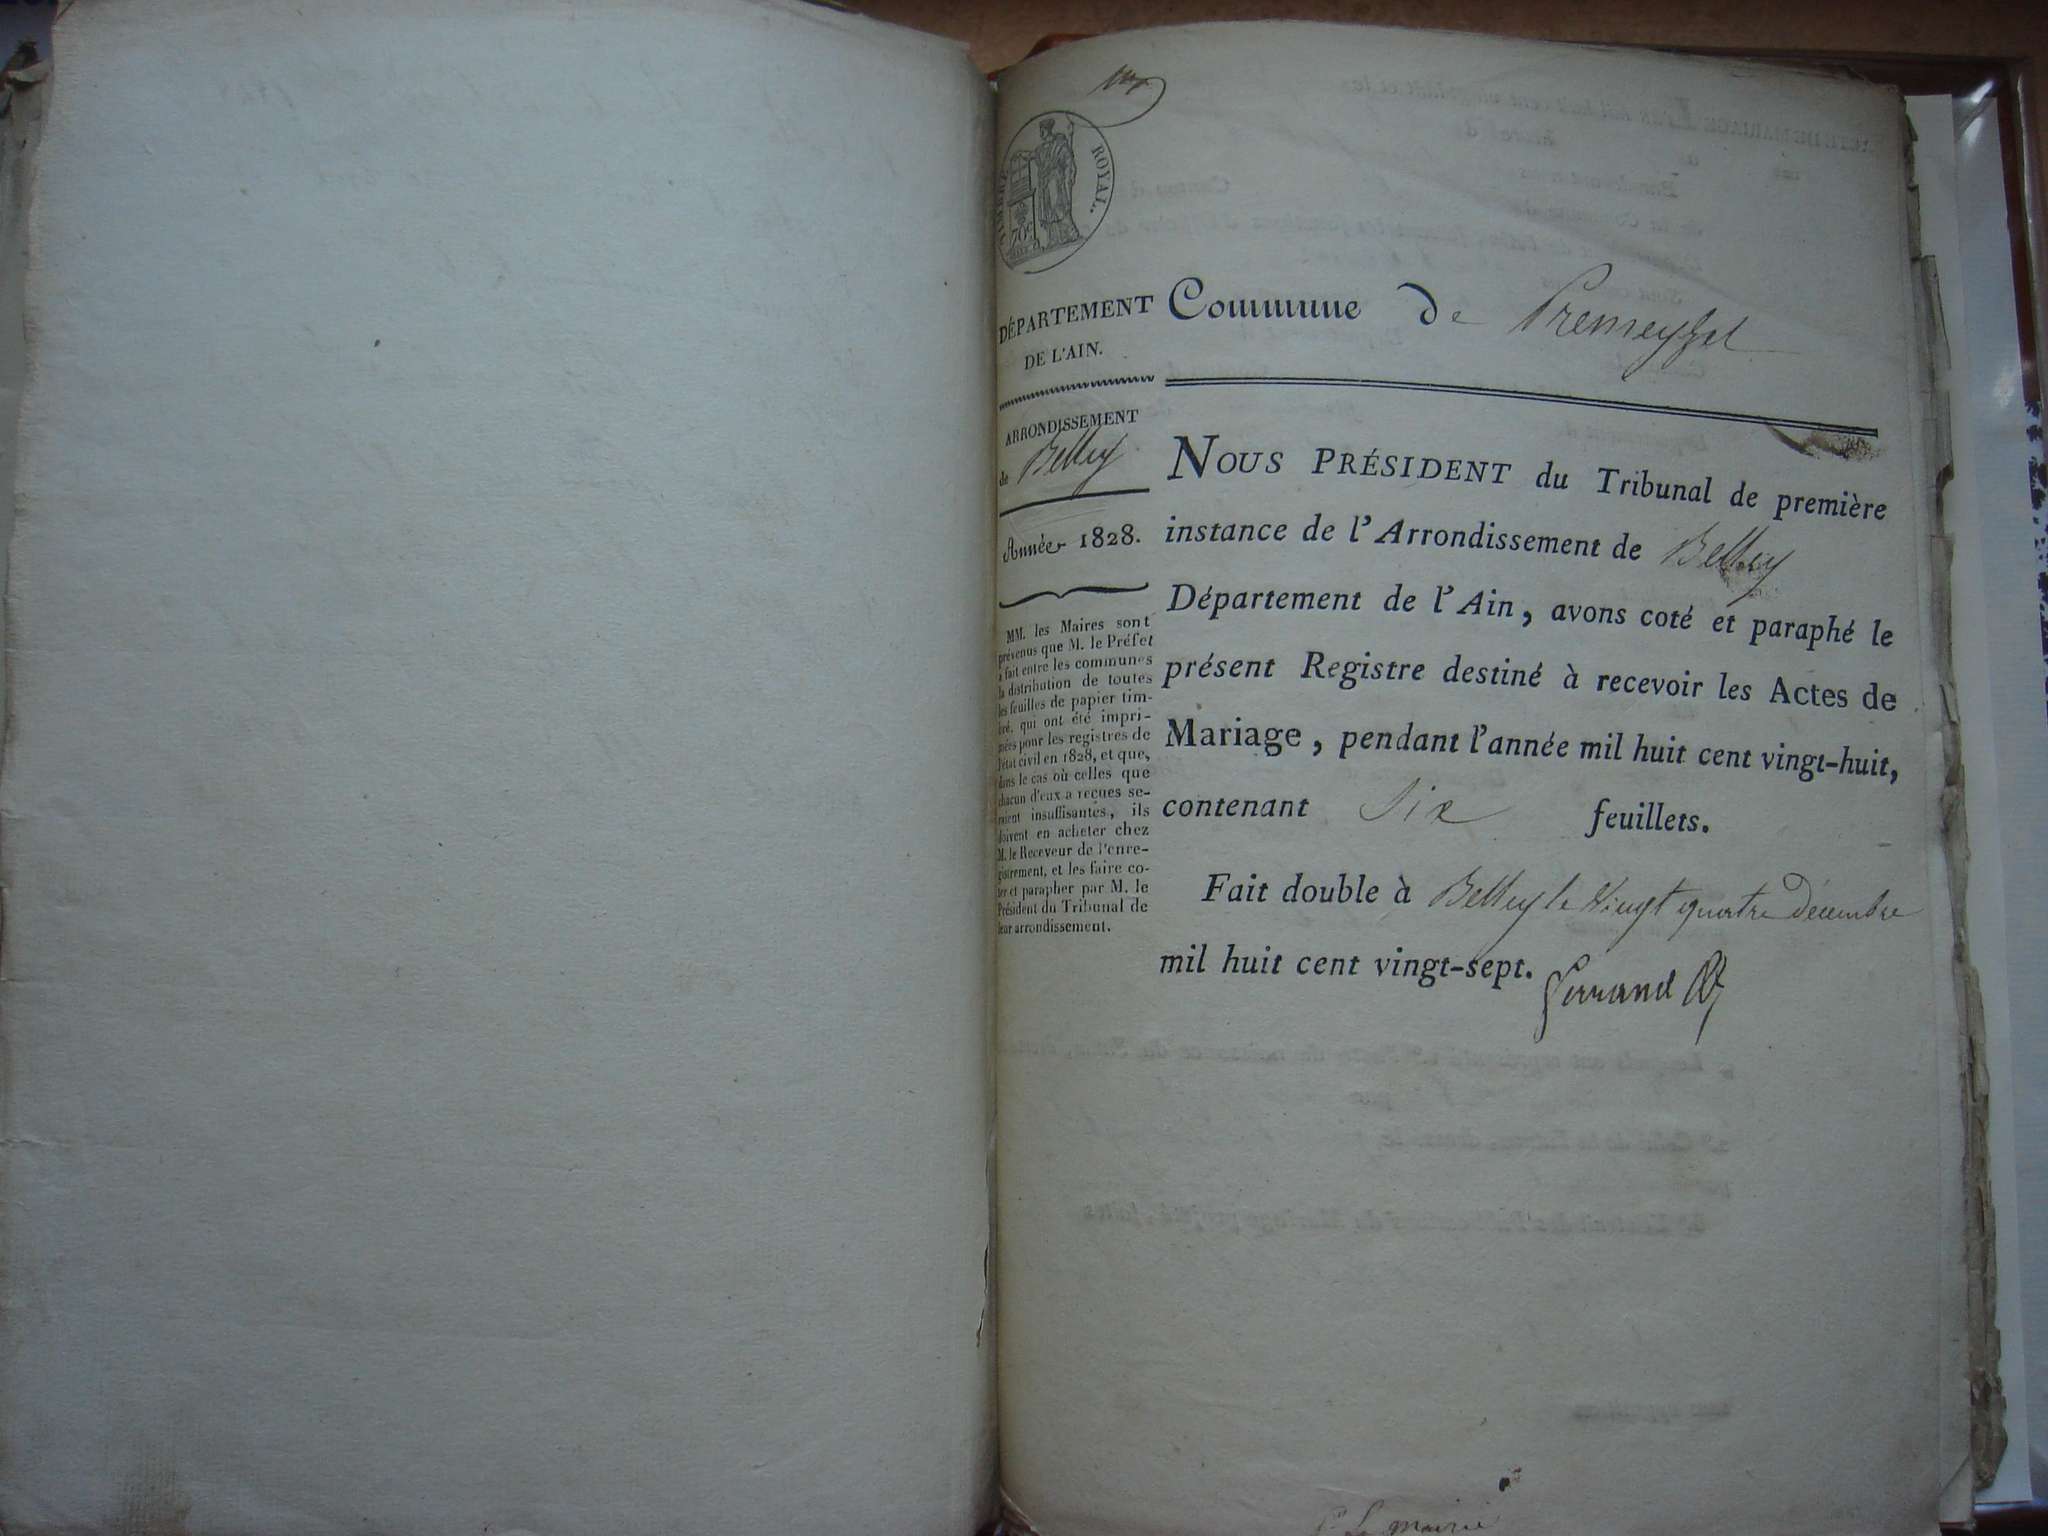 TIMBRE ROYAL.
70c
DÉPARTEMENT
DE L'AIN.
ARRONDISSEMENT
de Belley
Année 1828.
MM. les Maires sont
prévenus que M. le Préfet
a fait entre les communes
la distribution de toutes
les feuilles de papier tim-
bré, qui ont été impri-
mées pour les registres de
l'état civil en 1828, et que,
dans le cas où celles que
chacun d'eux a reçues se-
raient insuffisantes, ils
doivent en acheter chez
M. le Receveur de l'enre-
gistrement, et les faire co-
ter et parapher par M. le
Président du Tribunal de
leur arrondissement.
Commune de Premeyzel
NOUS PRÉSIDENT du Tribunal de première
instance de l'Arrondissement de Belley
Département de l'Ain, avons coté et paraphé le
présent Registre destiné à recevoir les Actes de
Mariage, pendant l'année mil huit cent vingt-huit,
contenant six feuillets.
Fait double à Belley le vingt quatre Décembre
mil huit cent vingt-sept.
La mairie